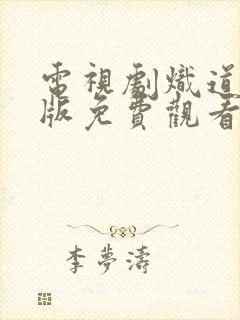 電視劇熾道
版免費觀看
李夢濤